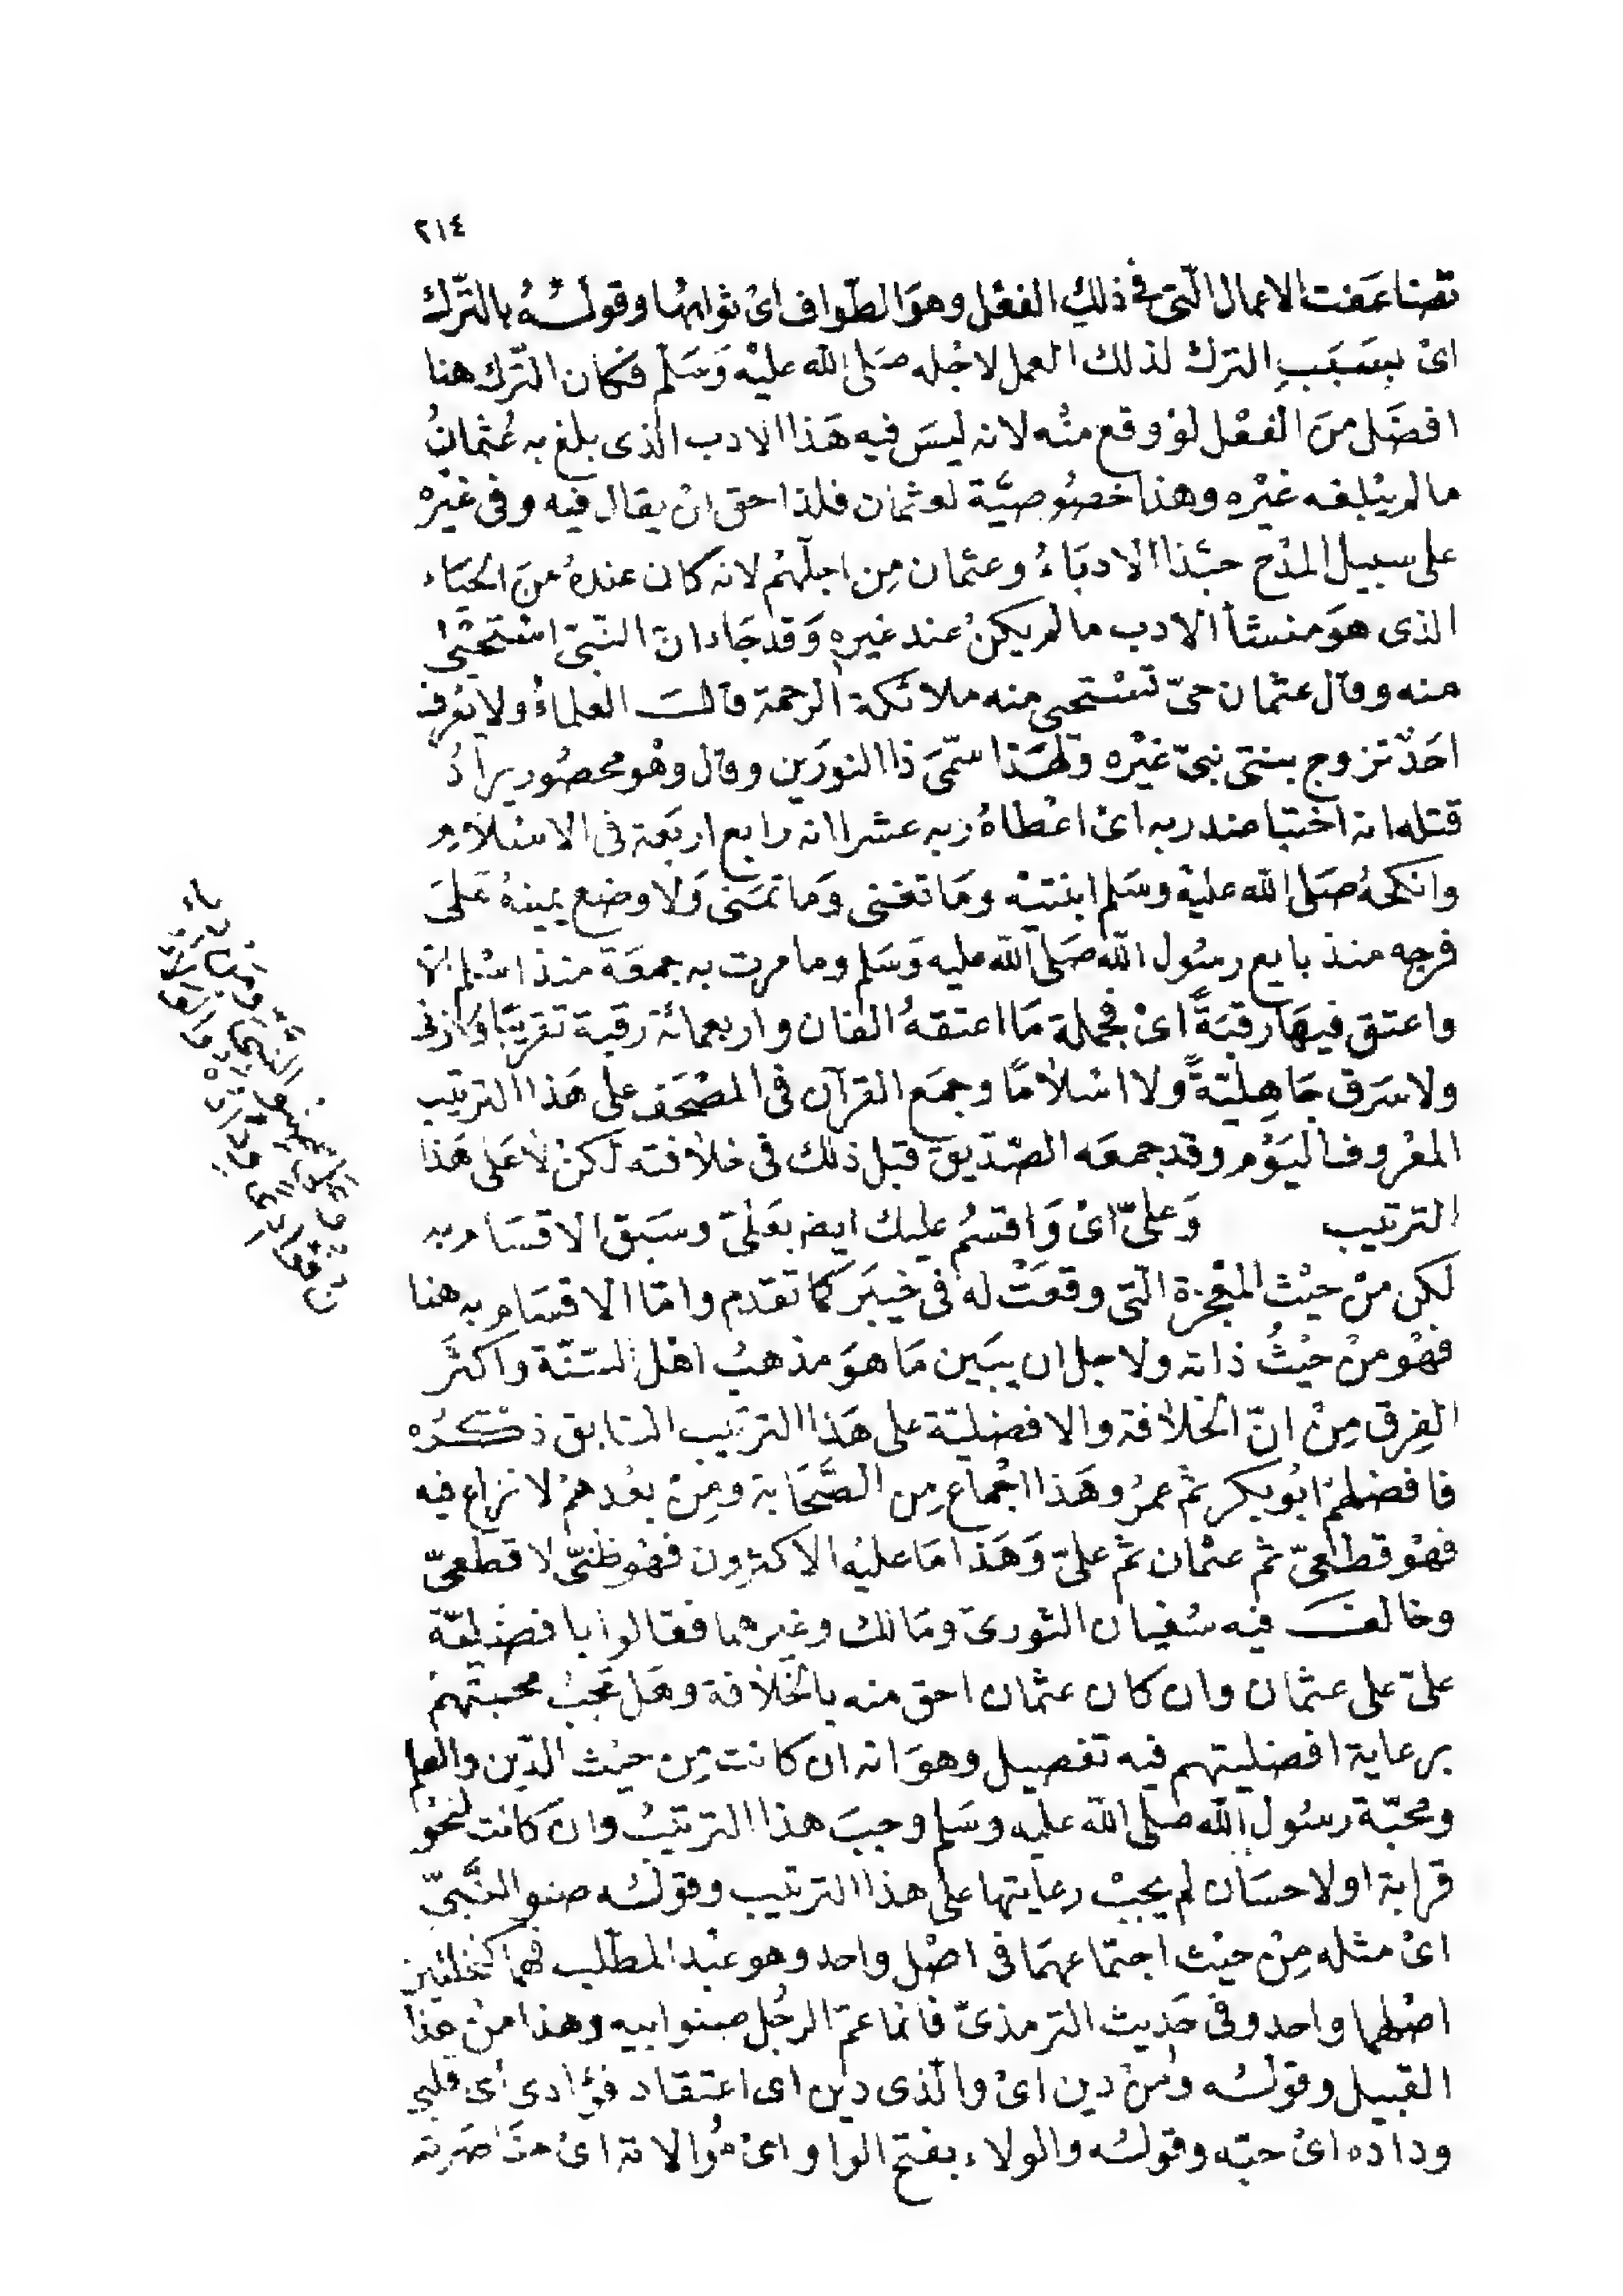 ٢١٤
تضاعفت الاعمال التي في ذلك الفعل وهو الطواف اى ثوابها وقوله بالترك
اى بسبب الترك لذلك العمل لاجله صلى الله عليه وسلم فكان الترك هنا
افضل من الفعل لو وقع منه لانه ليس فيه هذا الادب الذى بلغ به عثمان
ما لم يبلغه غيره وهذا خصوصية لعثمان فلذا حق ان يقال فيه وفى غيره
على سبيل المدح حبذا الادباء وعثمان من اجلهم لانه كان عنده من الحياء
الذى هو منشأ الادب ما لم يكن عند غيره وقد جاء ان النبى استحيى
منه وقال عثمان حيى تستحيى منه ملائكة الرحمة قالت العلماء ولا يعرف
احد تزوج ببنتى نبى غيره ولهذا سمى ذا النورين وقال وهو محصور يراد
قتله انه اختبا عند ربه اى اعطاه ربه عشرا انه رابع اربعة فى الاسلام
وانكحه صلى الله عليه وسلم ابنتيه وما تغنى وما تمنى ولا وضع يمينه على
فرجه منذ بايع رسول الله صلى الله عليه وسلم وما مرت به جمعة منذ اسلم الا
واعتق فيها رقبة اى فجملة ما اعتقه الفان واربعمائة رقبة تقريبا ولا زنى
ولا سرق جاهلية ولا اسلاما وجمع القرآن فى المصحف على هذا الترتيب
المعروف اليوم وقد جمعه الصديق قبل ذلك فى خلافته لكن لا على هذا
الترتيب وعلى اى واقسم عليك ايض بعلى وسبق الاقسام به
لكن من حيث المعجزة التى وقعت له فى خيبر كما تقدم واما الاقسام به هنا
فهو من حيث ذاته ولاجل ان يبين ما هو مذهب اهل السنة واكثر
الفرق من ان الخلافة والافضلية على هذا الترتيب السابق ذكره
فافضلهم ابو بكر ثم عمر وهذا اجماع من الصحابة ومن بعدهم لا نزاع فيه
فهو قطعى ثم عثمان ثم على وهذا ما عليه الاكثرون فهو ظنى لا قطعى
وخالف فيه سفيان الثورى ومالك وغيرهما فقالوا بافضلية
على على عثمان وان كان عثمان احق منه بالخلافة وهل تجب محبتهم
برعاية افضليتهم فيه تفصيل وهو انه ان كانت من حيث الدين والعلم
ومحبة رسول الله صلى الله عليه وسلم وجب هذا الترتيب وان كانت لنحو
قرابة او لاحسان لم يجب رعايتها على هذا الترتيب وقوله صنو النبى
اى مثله من حيث اجتماعهما فى اصل واحد وهو عبد المطلب فهما كنخلتين
اصلهما واحد وفى حديث الترمذى فانما عم الرجل صنو ابيه وهذا من هذا
القبيل وقوله ومن دين اى والذى دين اى اعتقاد فؤادى اى قلبى
وداده اى حبه وقوله والولاء بفتح الواو اى موالاته اى مناصرته
وعلى صنو النبى ومن
دين فؤادى وداده والولاء